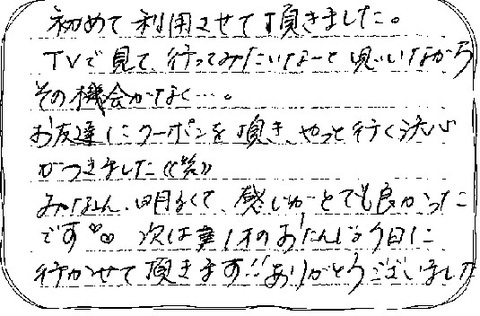 初めて利用させて頂きました。
TVで見て、行ってみたいなーて思いながら
その機会がなく…。
お友達にクーポンを頂き、やっと行く決心
がつきました《笑》
みなさん、明るくて、感じがとても良かった
です♡♡ 次は第1子のおたんじょう日に
行かせて頂きます!!ありがとうございました